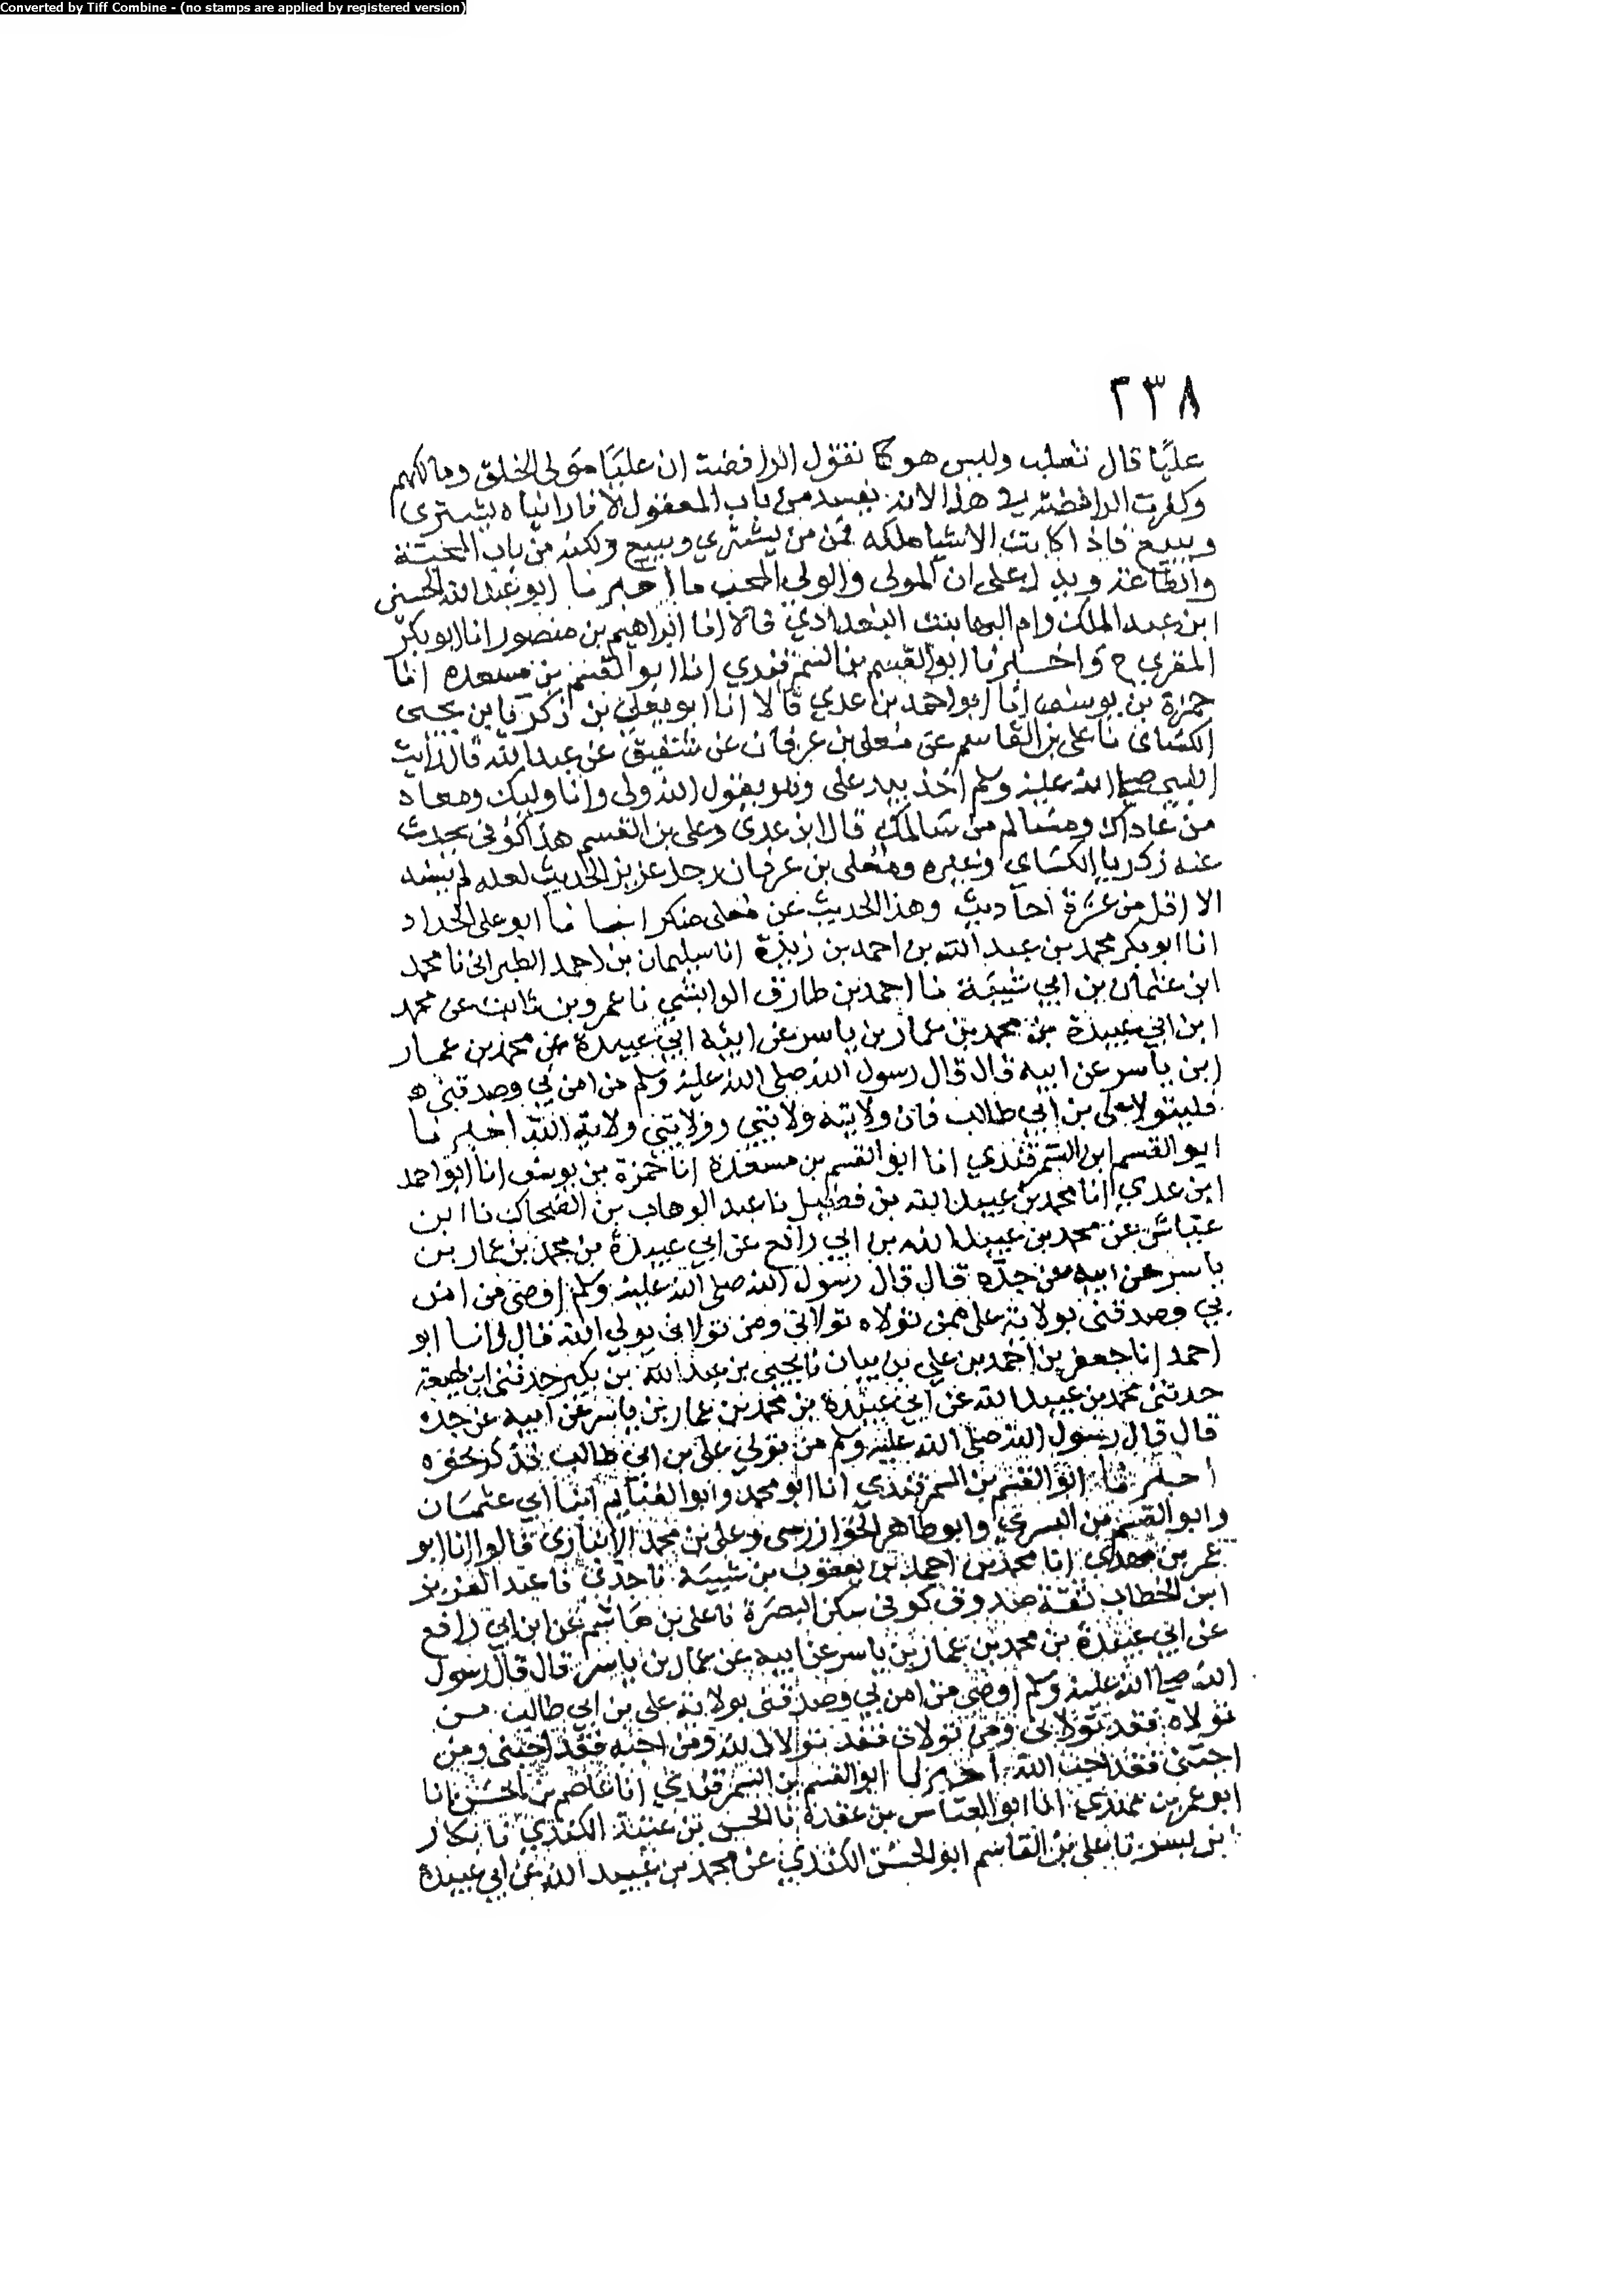 Converted by Tiff Combine - (no stamps are applied by registered version)
٢٣٨
عليًا قال ثعلب وليس هو كما تقول الرافضة ان عليًا مولى الخلق ومالكهم
وكفرت الرافضة في هذا لانه يفسد من باب المعقول لانا رايناه يشترى
ويبيع فاذا كانت الاشيا ملكه فمن من يشتري ويبيع ولكنه من باب المحبة
والطاعة ويدل على ان المولى والولى المحب ما اخبرنا ابو عبد الله الحسين
ابن عبد الملك وام البها بنت البغدادي قالا انا ابراهيم بن منصور انا ابو بكر
المقري ح واخبرنا ابو القسم بن السمرقندي انا ابو القسم بن مسعدة انا
حمزة بن يوسف انا ابو احمد بن عدي قالا انا ابو يعلى نا زكريا بن يحيى
الكسائ نا على بن القاسم عن معلى بن عرفان عن شقيق عن عبد الله قال رايت
النبي صلى الله عليه وسلم اخذ بيد على وهو يقول الله ولى وانا وليك ومعاد
من عاداك ومسالم من سالمك قال ابن عدى وعلى بن القسم هذا كوفى يحدث
عنه زكريا الكسائ وغيره ومعلى بن عرفان رجل عزيز الحديث لعله لم يسند
الا اقل من عشرة احاديث وهذا الحديث عن معلى منكر انبانا ابو على الحداد
انا ابو بكر محمد بن عبد الله بن احمد بن ريذة انا سليمان بن احمد الطبرانى نا محمد
ابن عثمان بن ابي شيبة نا احمد بن طارق الوابشي نا عمرو بن ثابت عن محمد
ابن ابي عبيدة بن محمد بن عمار بن ياسر عن ابيه ابي عبيدة عن محمد بن عمار
ابن ياسر عن ابيه قال قال رسول الله صلى الله عليه وسلم من امن بي وصدقني
فليتولا على بن ابي طالب فان ولايته ولايتي وولايتي ولاية الله اخبرنا
ابو القسم ابن السمرقندي انا ابو القسم بن مسعدة انا حمزة بن يوسف انا ابو احمد
ابن عدي انا محمد بن عبيد الله بن فضيل نا عبد الوهاب بن الضحاك نا ابن
عياش عن محمد بن عبيد الله بن ابي رافع عن ابي عبيدة بن محمد بن عمار بن
ياسر عن ابيه عن جده قال قال رسول الله صلى الله عليه وسلم اوصى من امن
بي وصدقنى بولاية على فمن تولاه تولاني ومن تولانى تولى الله قال وانا ابو
احمد انا جعفر بن احمد بن علي بن بيان نا يحيى بن عبد الله بن بكير حدثنى ابن لهيعة
حدثنى محمد بن عبيد الله عن ابي عبيدة بن محمد بن عمار بن ياسر عن ابيه عن جده
قال قال رسول الله صلى الله عليه وسلم من تولى على بن ابى طالب فذكر نحوه
اخبرنا ابو القسم بن السمرقندي انا ابو محمد وابو الغنايم ابنا ابي عثمان
وابو القسم بن البسري وابو طاهر الخوارزمى وعلى بن محمد الانبارى قالوا انا ابو
عمر بن مهدي انا محمد بن احمد بن يعقوب بن شيبة نا جدى نا عبد العزيز
ابن الخطاب ثقة صدوق كوفى سكن البصرة نا على بن هاشم عن ابن ابي رافع
عن ابي عبيدة بن محمد بن عمار بن ياسر عن ابيه عن عمار بن ياسر قال قال رسول
الله صلى الله عليه وسلم اوصى من امن بي وصدقنى بولاية على بن ابي طالب من
تولاه فقد تولانى ومن تولانى فقد تولا الله ومن احبه فقد احبنى ومن
احبنى فقد احب الله اخبرنا ابو القسم بن السمرقندي انا عاصم بن الحسن انا
ابو عمر بن مهدي انا ابو العباس بن عقدة نا الحسن بن عتبة الكندي نا بكار
ابن بسر نا على بن القاسم ابو الحسن الكندي عن محمد بن عبيد الله عن ابي عبيدة